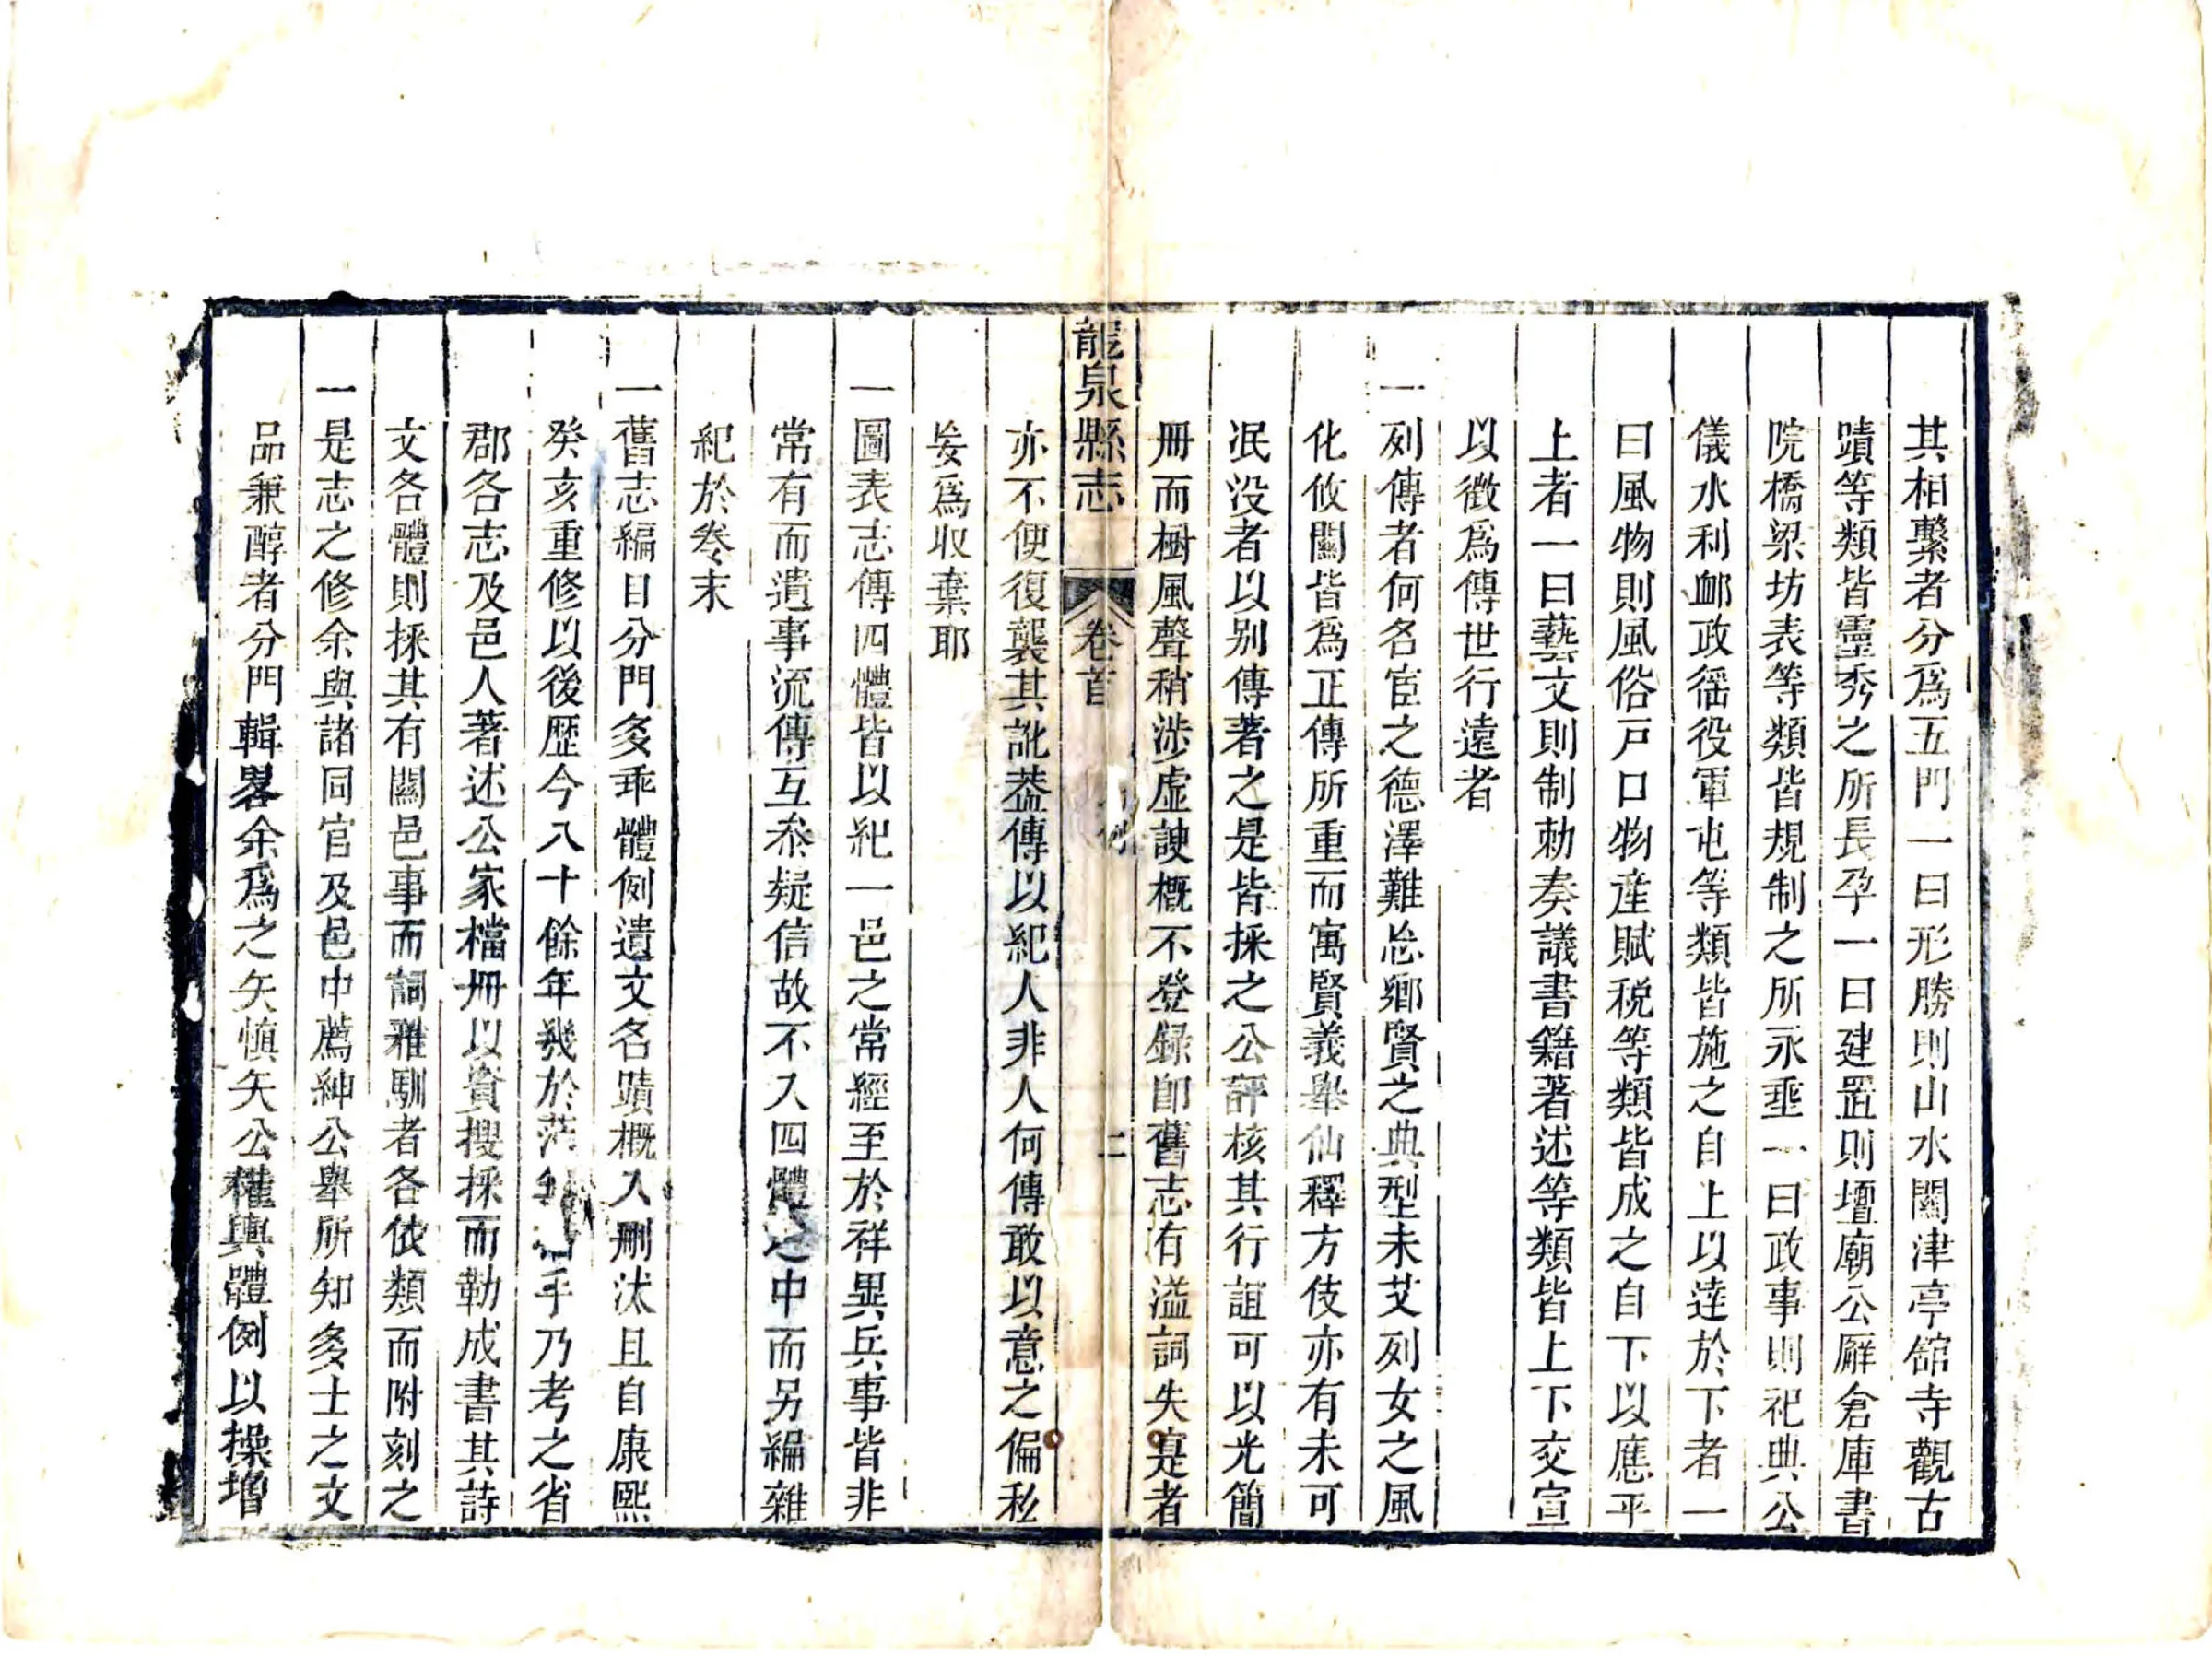 其相繫者分爲五門一曰形勝則山水關津亭舘寺觀古
蹟等類皆靈秀之所長孕一曰建置則壇廟公廨倉庫書
院橋梁坊表等類皆規制之所永垂一曰政事則祀典公
儀水利衈政徭役軍屯等類皆施之自上以逹於下者一
曰風物則風俗戸口物産賦税等類皆成之自下以應乎
上者一曰藝文則制勅奏議書籍著述等類皆上下交宣
以徵爲傳世行遠者
一列傳者何名宦之德澤難忘鄉賢之典型未艾列女之風
化攸關皆爲正傳所重而寓賢義舉仙釋方伎亦有未可
泯没者以别傳著之是皆採之公評核其行誼可以光簡
冊而樹風聲稍涉虚諛概不登録即舊志有溢詞失寔者
龍泉縣志 卷首 例 二
亦不便復襲其訛葢傳以紀人非人何傳敢以意之偏私
妄爲取棄耶
一圖表志傳四體皆以紀一邑之常經至於祥異兵事皆非
常有而遺事流傳互叅疑信故不入四體之中而另編雜
紀於卷末
一舊志編目分門多乖體例遺文名蹟概入刪汰且自康熙
癸亥重修以後歴今八十餘年幾於茫乎乃考之省
郡各志及邑人著述公家檔冊以資搜採而勒成書其詩
文各體則採其有關邑事而詞雅馴者各依類而附刻之
一是志之修余與諸同官及邑中薦紳公舉所知多士之文
品兼醇者分門輯畧余爲之矢慎矢公權輿體例以操增